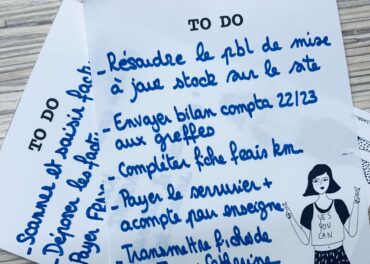 TO DO
- Résoudre le pbl de mise
à jour stock sur le site
- Envoyer bilan compta 22/23
aux greffes
- Compléter fiche frais km
- Payer le serrurier +
acompte pour enseigne
- Transmettre fiche de
Catherine
YES
YOU
CAN
TO DO
- Scanner et saisir fact
- Déposer les fact
- Payer